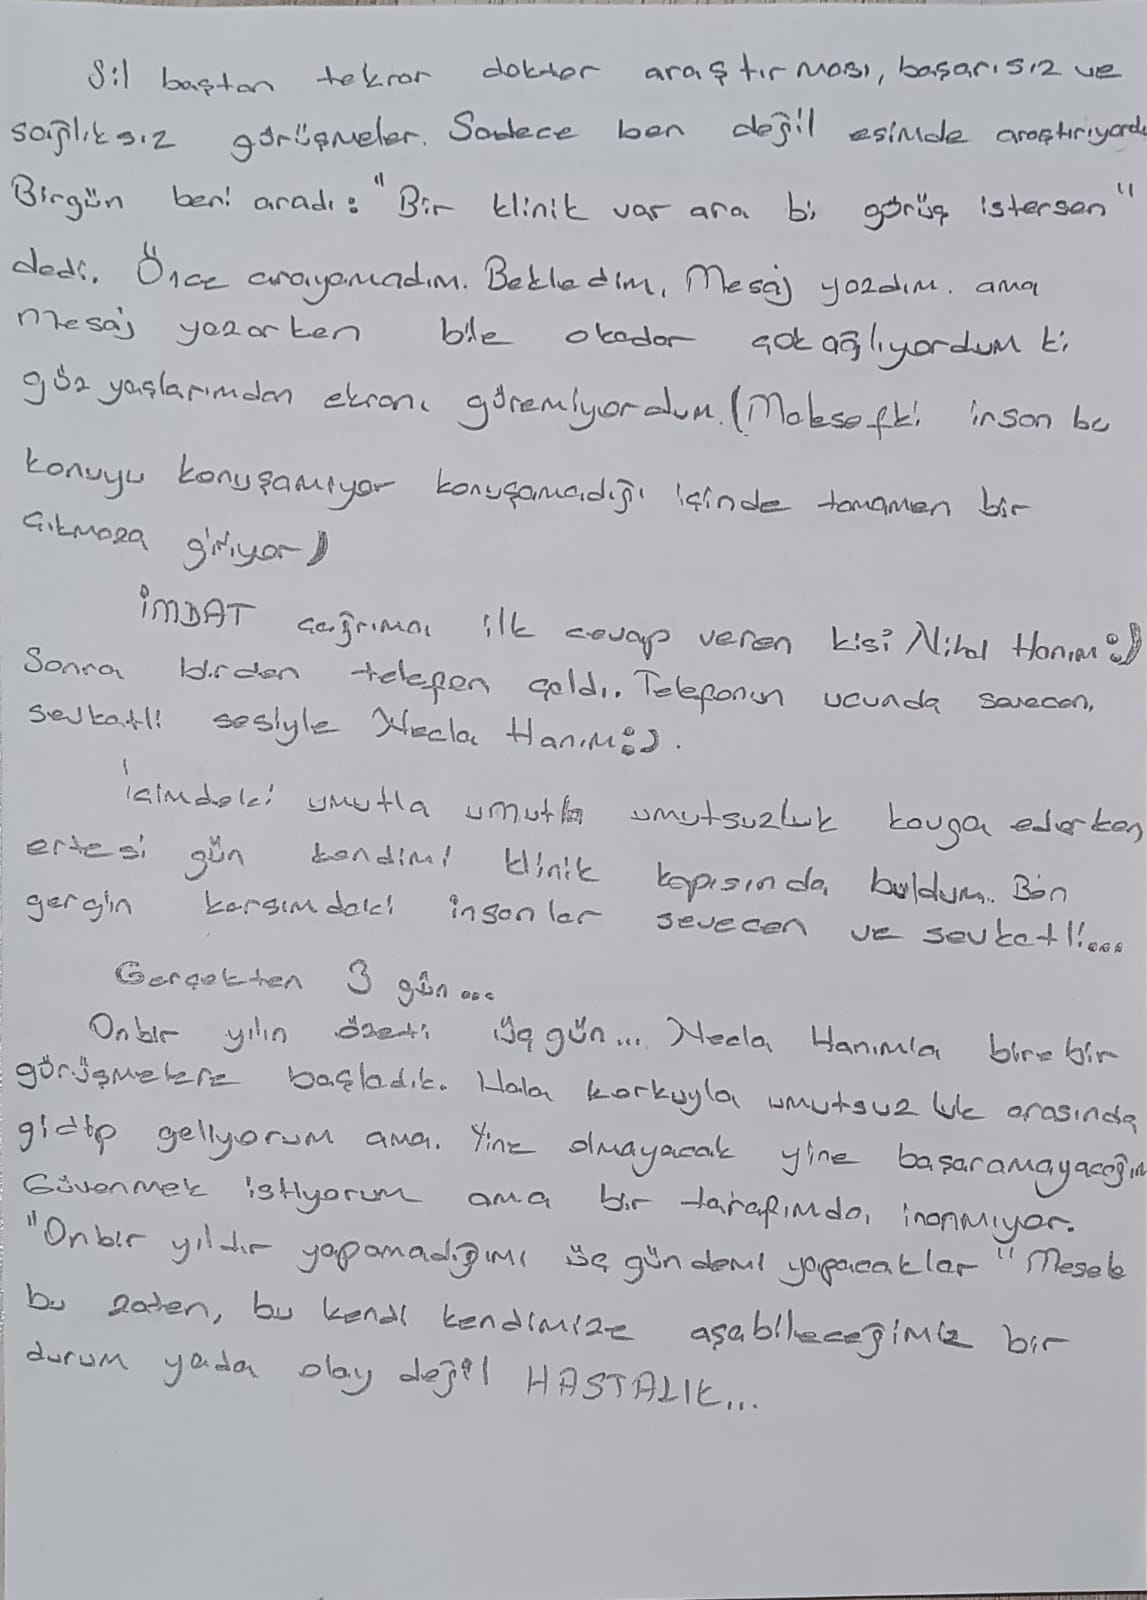 Sil baştan tekrar doktor araştırması, başarısız ve
sağlıksız görüşmeler. Sadece ben değil esimde araştırıyordu
Birgün beni aradı: "Bir klinik var ara bi görüş istersen"
dedi. Önce arayamadım. Bekledim, Mesaj yazdım. ama
Mesaj yazarken bile okadar çok ağlıyordum ki
göz yaşlarımdan ekranı göremiyordum. (Malesefki insan bu
konuyu konuşamıyor konuşamadığı içinde tamamen bir
çıkmaza giriyor)
İMDAT çağrıma ilk cevap veren kisi Nihal Hanım :)
Sonra birden telefon geldi. Telefonun ucunda sevecen,
sevkatli sesiyle Necla Hanım :).
İçimdeki umutla umutla umutsuzluk kavga ederken
ertesi gün kendimi klinik kapısında buldum.. Ben
gergin karsımdaki insanlar sevecen ve sevkatli....
Gerçekten 3 gün...
Onbir yılın özeti üç gün... Necla Hanımla birebir
görüşmelere başladık. Hala korkuyla umutsuzluk arasında
gidip geliyorum ama. Yine olmayacak yine başaramayacağım
Güvenmek istiyorum ama bir tarafımda inanmıyor.
"Onbir yıldır yapamadığımı üç gündemi yapacaklar" Mesele
bu zaten, bu kendi kendimize aşabileceğimiz bir
durum yada olay değil HASTALIK...